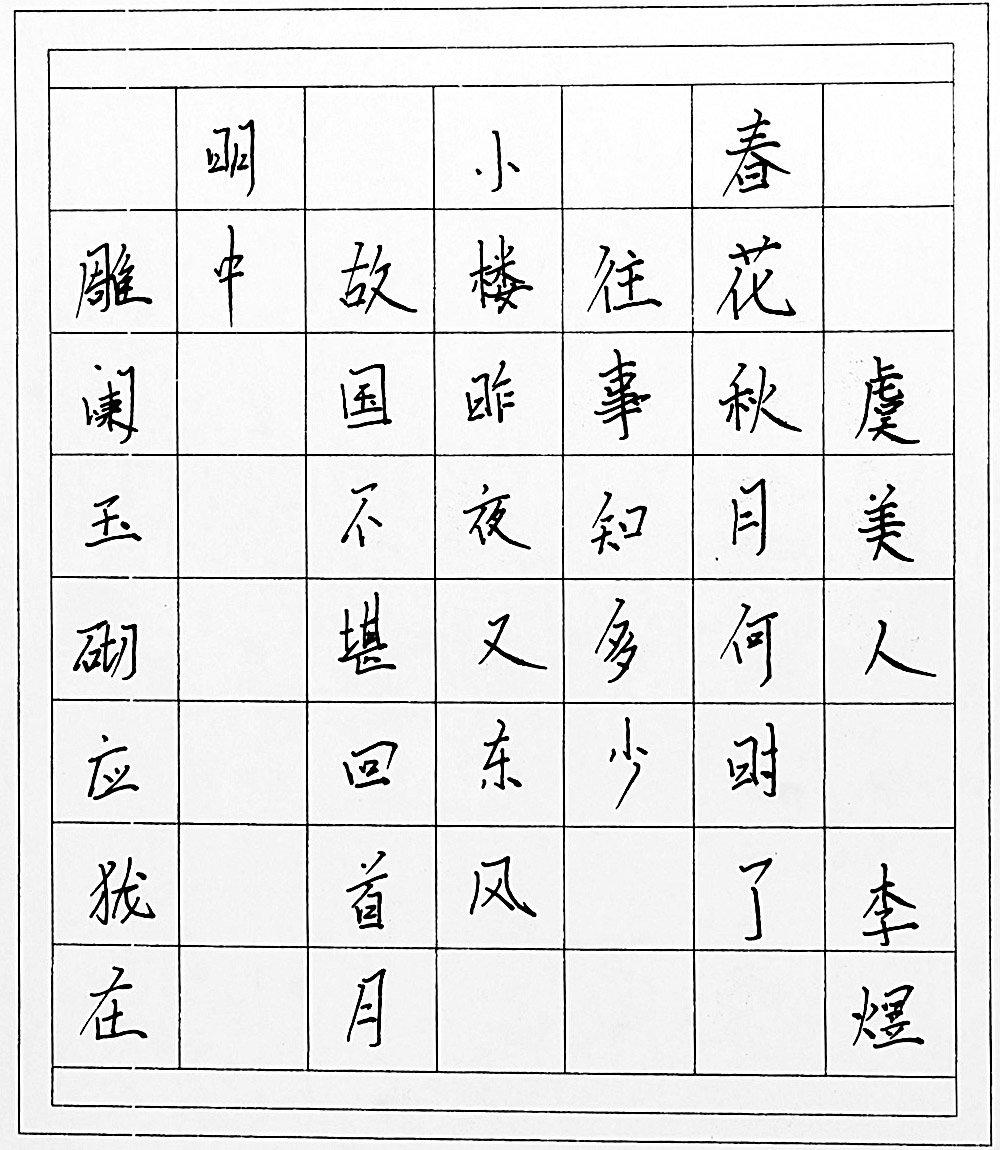 虞美人 李煜
春花秋月何时了
往事知多少
小楼昨夜又东风
故国不堪回首月
明中
雕阑玉砌应犹在